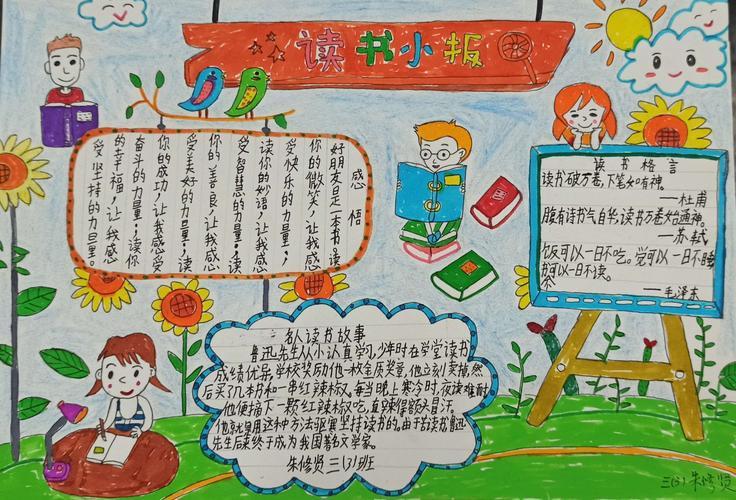 读书小报
感悟
好朋友是一本书。读
你的微笑,让我感
受快乐的力量;
读你的妙语,让我感
受智慧的力量;读
你的善良,让我感
受美好的力量;读
你的成功,让我感受
奋斗的力量;读你
的幸福,让我感
受坚持的力量。
读书格言
读书破万卷,下笔如有神。
——杜甫
腹有诗书气自华,读书万卷始通神。
——苏轼
饭可以一日不吃。觉可以一日不睡
书可以一日不读。
不
——毛泽东
名人读书故事
鲁迅先生从小认真学习,少年时在学堂读书
成绩优异,学校奖励他一枚金质奖章,他立刻卖掉,然
后买了几本书和一串红辣椒。每当晚上寒冷时,夜读难耐
他便摘下一颗红辣椒吃,直辣得额头冒汗。
他就用这种方法驱寒坚持读书的,由于苦读书鲁迅
先生后来终于成为我国著名文学家。
朱修贤 三(3)班
三(3) 朱修贤